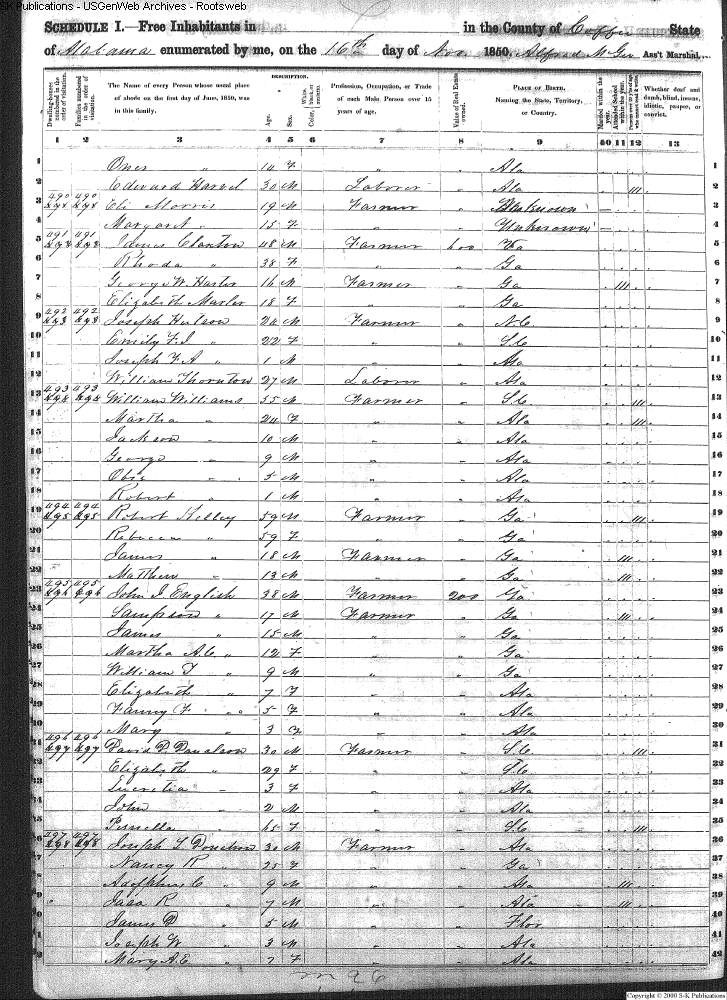 SK Publications - USGenWeb Archives - Rootsweb
SCHEDULE I.—Free Inhabitants in in the County of Coffee State
of Alabama enumerated by me, on the 16th day of Nov. 1850. Alfred McGee Ass't Marshal.
Dwelling-houses numbered in the order of visitation. Families numbered in the order of visitation. The Name of every Person whose usual place of abode on the first day of June, 1850, was in this family. DESCRIPTION. Age. Sex. White, black, or mulatto. Color, Profession, Occupation, or Trade of each Male Person over 15 years of age. Value of Real Estate owned. PLACE OF BIRTH. Naming the State, Territory, or Country. Married within the year. Attended School within the year. Whether deaf and dumb, blind, insane, idiotic, pauper, or convict.
1 2 3 4 5 6 7 8 9 10 11 12 13
1 " 14 F " Ala 1
2 Edward 30 M Laborer " Ala 2
3 490 490 Eli Morris 19 M Farmer " Unknown 3
4 Margaret " 15 F " " Unknown 4
5 491 491 James Clanton 48 M Farmer 600 5
6 Rhoda " 38 F " " Ga 6
7 George W. 16 M Farmer " Ga 7
8 Elizabeth 18 F " " Ga 8
9 492 492 Joseph Hutson 24 M Farmer " N.C. 9
10 Emily F. J. " 22 F " " S.C. 10
11 Joseph F. A. " 1 M " " Ala 11
12 William Thornton 27 M Laborer " Ala 12
13 493 493 William Williams 55 M Farmer " S.C. 13
14 Martha " 24 F " " Ala 14
15 Jackson " 10 M " " Ala 15
16 George " 9 M " " Ala 16
17 " 5 M " " Ala 17
18 Robert " 1 M " " Ala 18
19 494 494 Robert Kelley 59 M Farmer " Ga 19
20 Rebecca " 59 F " " Ga 20
21 James " 18 M Farmer " Ga 21
22 Matthew " 13 M " " Ga 22
23 495 495 John J. English 38 M Farmer 200 Ga 23
24 Sampson " 17 M Farmer " Ga 24
25 James " 15 M " " Ga 25
26 Martha A. C. " 12 F " " Ga 26
27 William T " 9 M " " Ga 27
28 Elizabeth " 7 F " " Ala 28
29 Fanny F. " 5 F " " Ala 29
30 Mary " 3 F " " Ala 30
31 496 496 David D. Donalson 30 M Farmer " S.C. 31
32 Elizabeth " 29 F " " S.C. 32
33 Lucretia " 3 F " " Ala 33
34 John " 2 M " " Ala 34
35 65 F " " S.C. 35
36 497 497 Joseph L. Donelson 30 M Farmer " Ala 36
37 Nancy R " 25 F " " Ga 37
38 Adolphus C " 9 M " " Ala 38
39 R " 7 M " " Ala 39
40 James D " 5 M " " Flor 40
41 Joseph W " 3 M " " Ala 41
42 Mary A. E. " F " " Ala 42
Copyright © 2000 S-K Publications